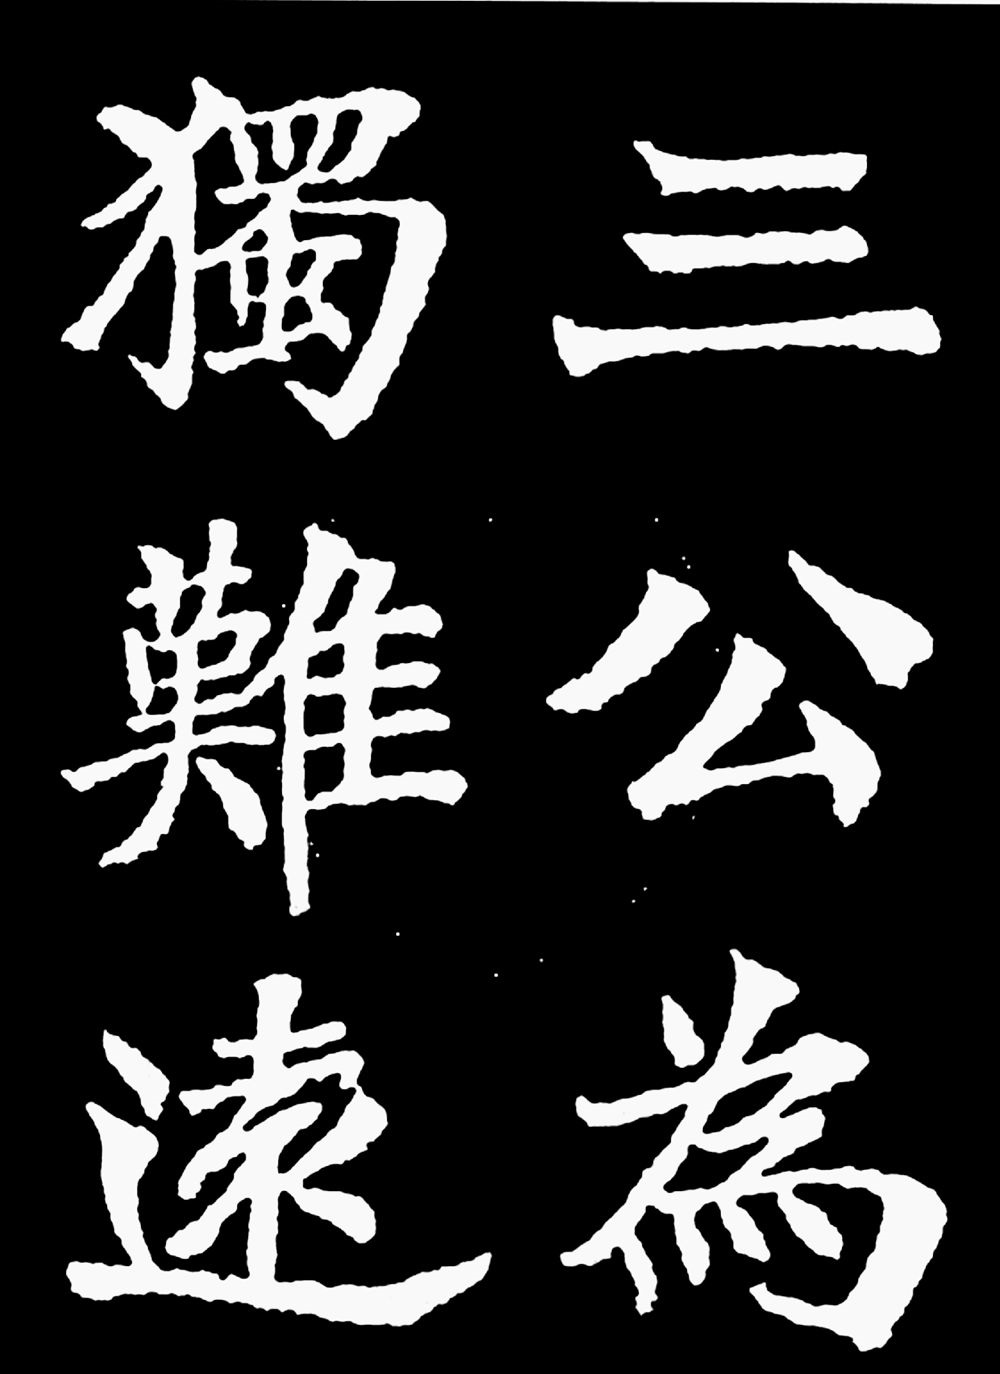 三公為
獨難遠